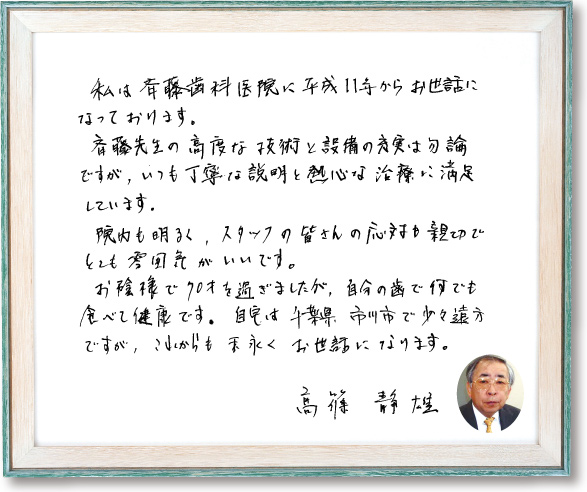 私は斉藤歯科医院に平成11年からお世話に
なっております。
斉藤先生の高度な技術と設備の充実は勿論
ですが、いつも丁寧な説明と熱心な治療に満足
しています。
院内も明るく、スタッフの皆さんの応対も親切で
とても雰囲気がいいです。
お陰様で70才を過ぎましたが、自分の歯で何でも
食べて健康です。自宅は千葉県市川市で少々遠方
ですが、これからも末永くお世話になります。
高篠 静雄